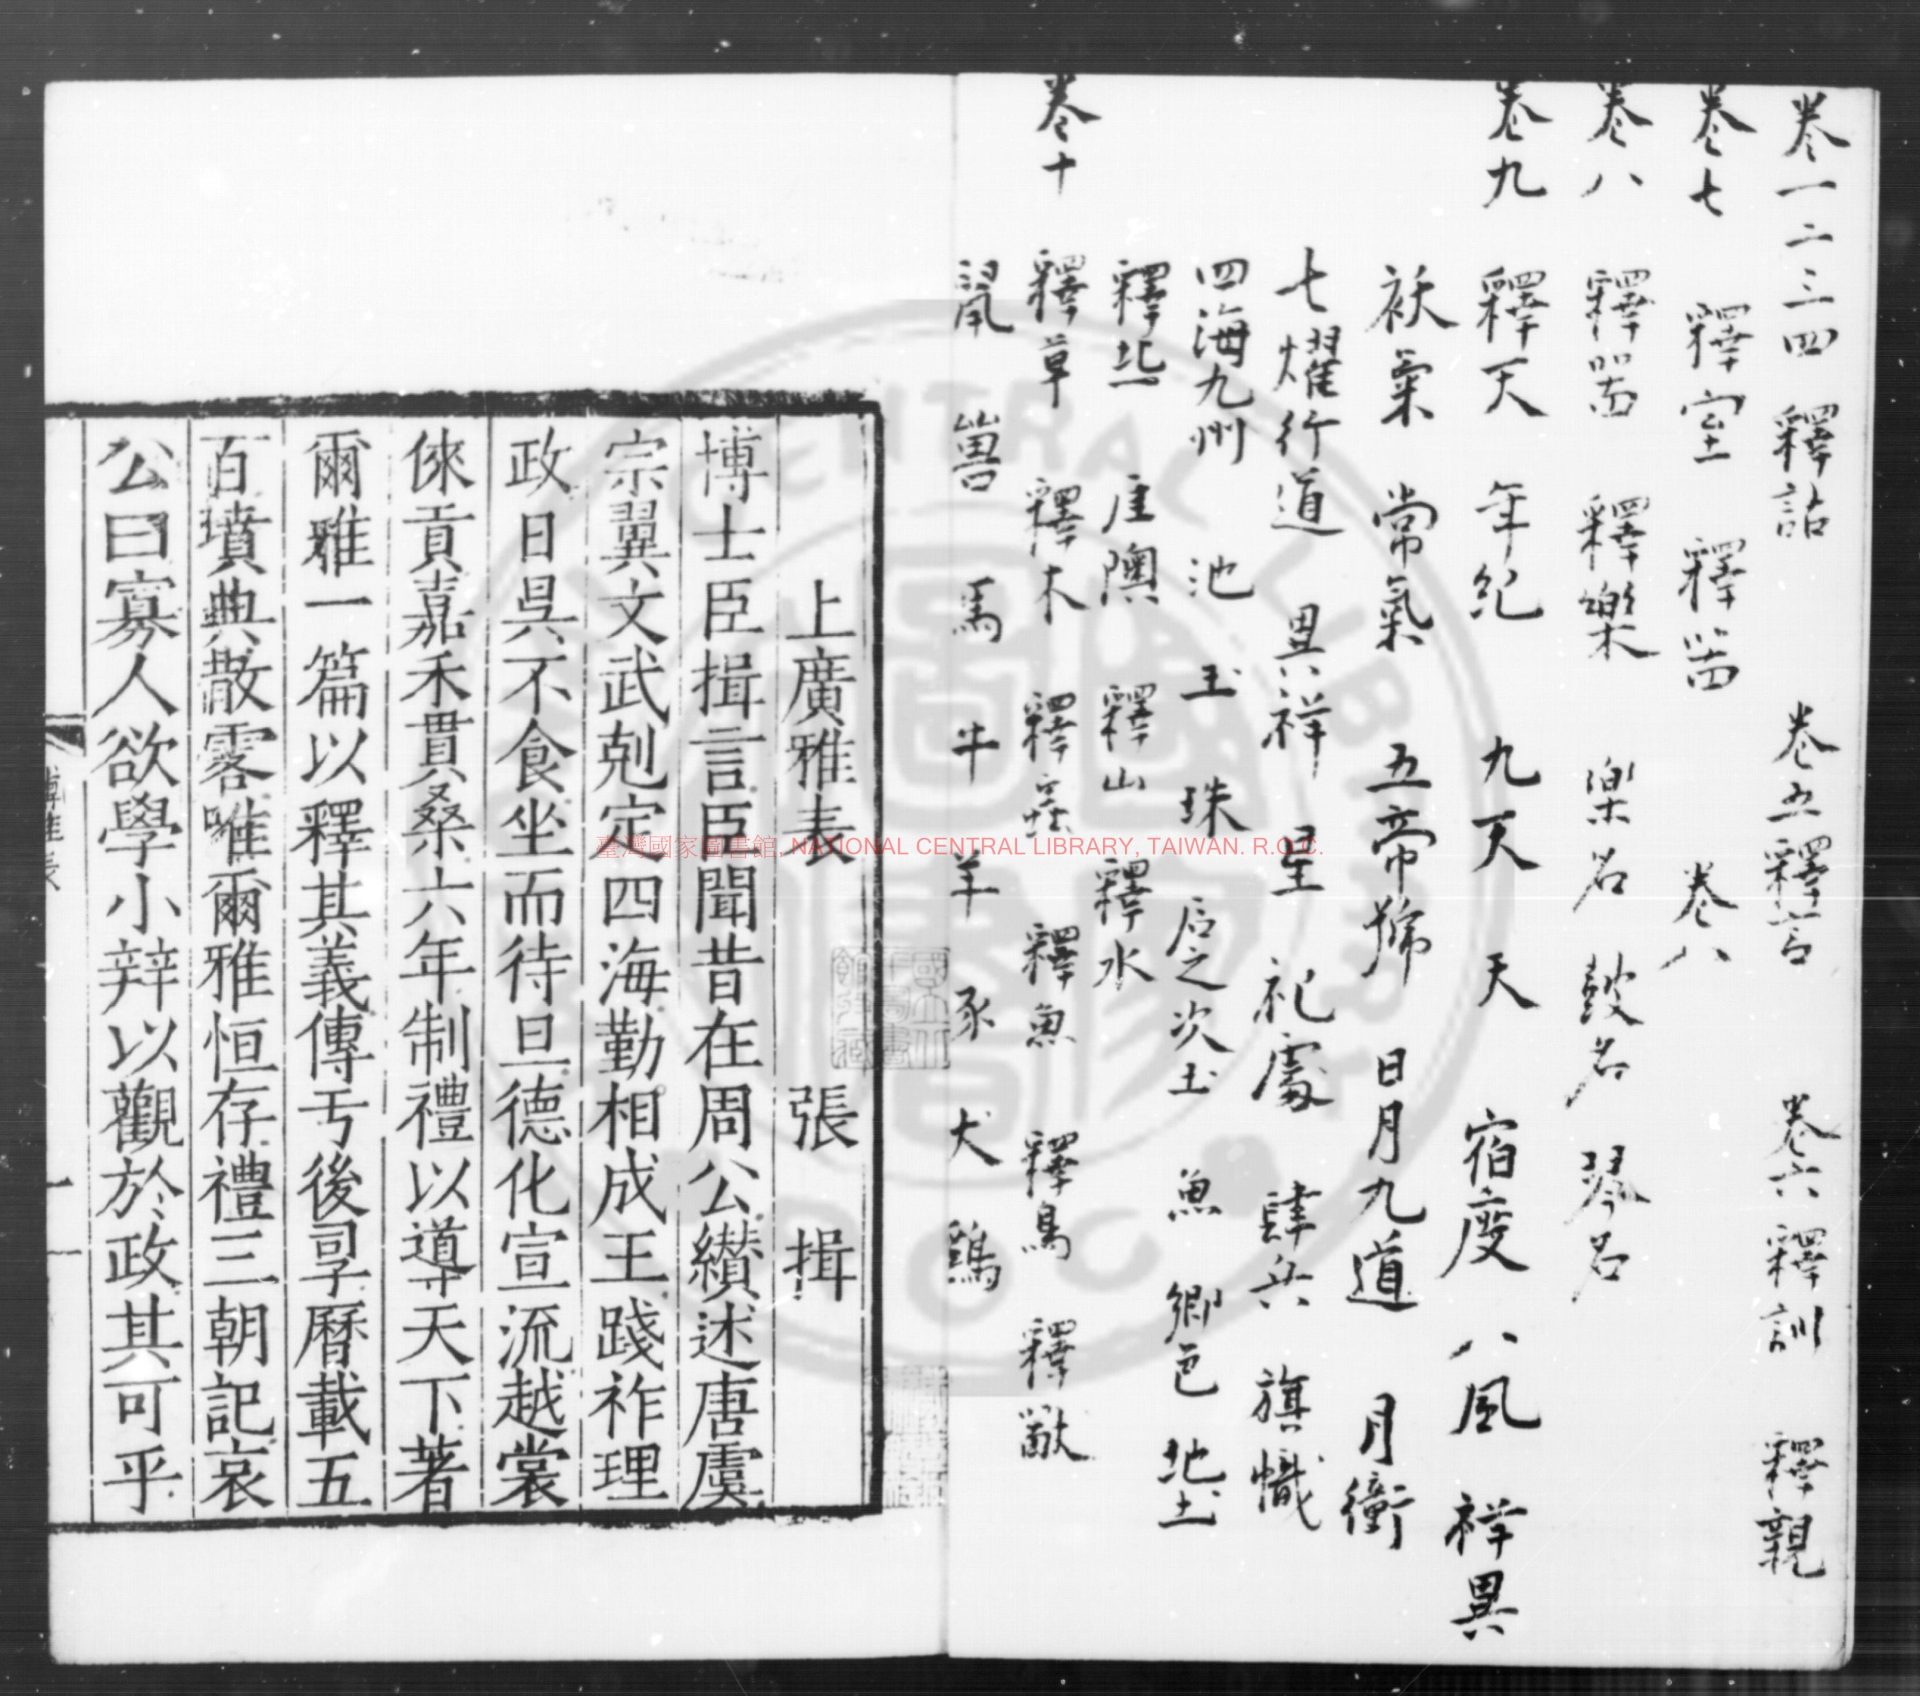 卷一二三四 釋詁 卷五釋言 卷六釋訓 釋親
卷七 釋室 釋器 卷八
卷八 釋器 釋樂 樂名 鼓名 琴名
卷九 釋天 年紀 九天 天 宿度 八風 祥異
祅氣 常氣 五帝號 日月九道 月衝
七燿行道 異祥 星 祀處 肆兵 旗幟
四海九州 池 玉 珠 后之次土 魚 鄉邑 地土
釋丠 厓隩 釋山 釋水
卷十 釋草 釋木 釋蟲 釋魚 釋鳥 釋獸
鼠 嘼 馬 牛 羊 豕 犬 鷄
上廣雅表 張 揖
博士臣揖言臣聞昔在周公纘述唐虞
宗翼文武剋定四海勤相成王踐祚理
政日昃不食坐而待旦德化宣流越裳
倈貢嘉禾貫桑六年制禮以導天下著
爾雅一篇以釋其義傳亏後孠曆載五
百墳典散零唯爾雅恒存禮三朝記哀
公曰寡人欲學小辯以觀於政其可乎
臺灣國家圖書館, NATIONAL CENTRAL LIBRARY, TAIWAN. R.O.C.